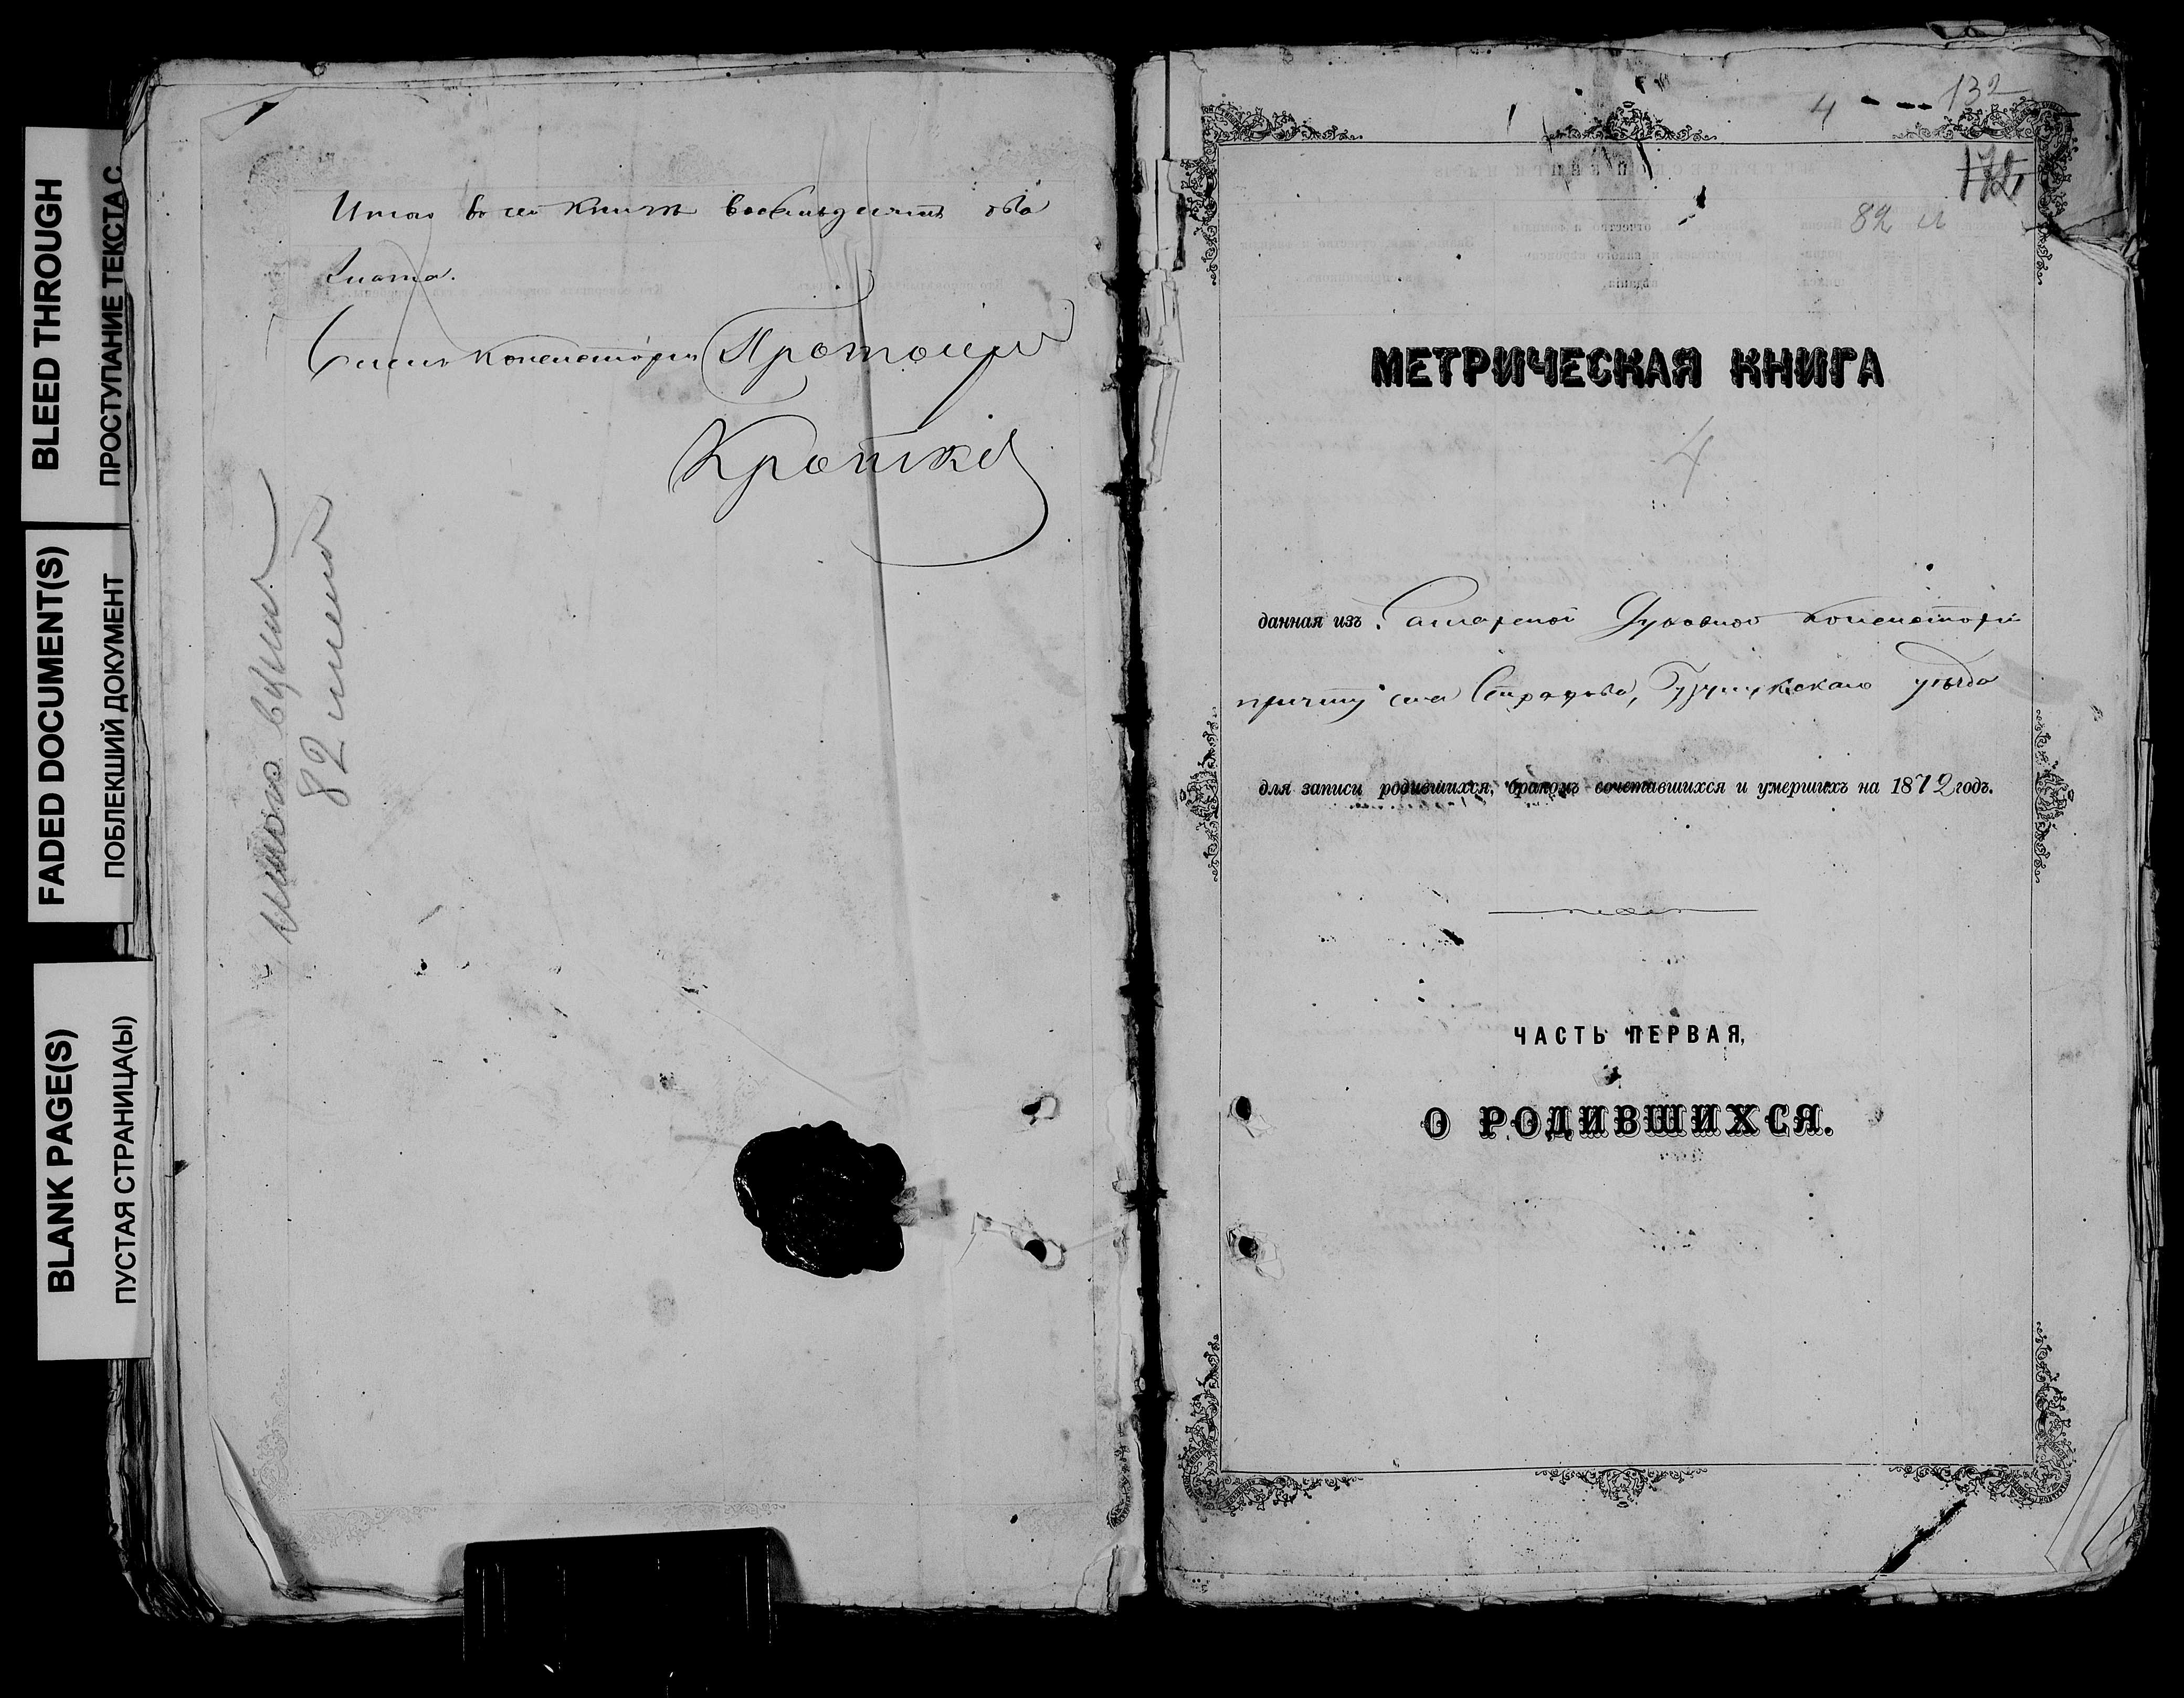 BLEED THROUGH
ПРОСТУПАНИЕ ТЕКСТА С
FADED DOCUMENT(S)
ПОБЛЕКШИЙ ДОКУМЕНТ
BLANK PAGE(S)
ПУСТАЯ СТРАНИЦА(Ы)
Итого во сей книгѣ восемьдесятъ два
листа.
Членъ Консисторіи Протоіерей
Кротков
82 листа
4 132
172
82 л
МЕТРИЧЕСКАЯ КНИГА
4
данная изъ Самарской Духовной Консисторіи
причту села Страхова, Бузулукскаго уѣзда
для записи родившихся, бракомъ сочетавшихся и умершихъ на 1872 годъ.
ЧАСТЬ ПЕРВАЯ,
О РОДИВШИХСЯ.